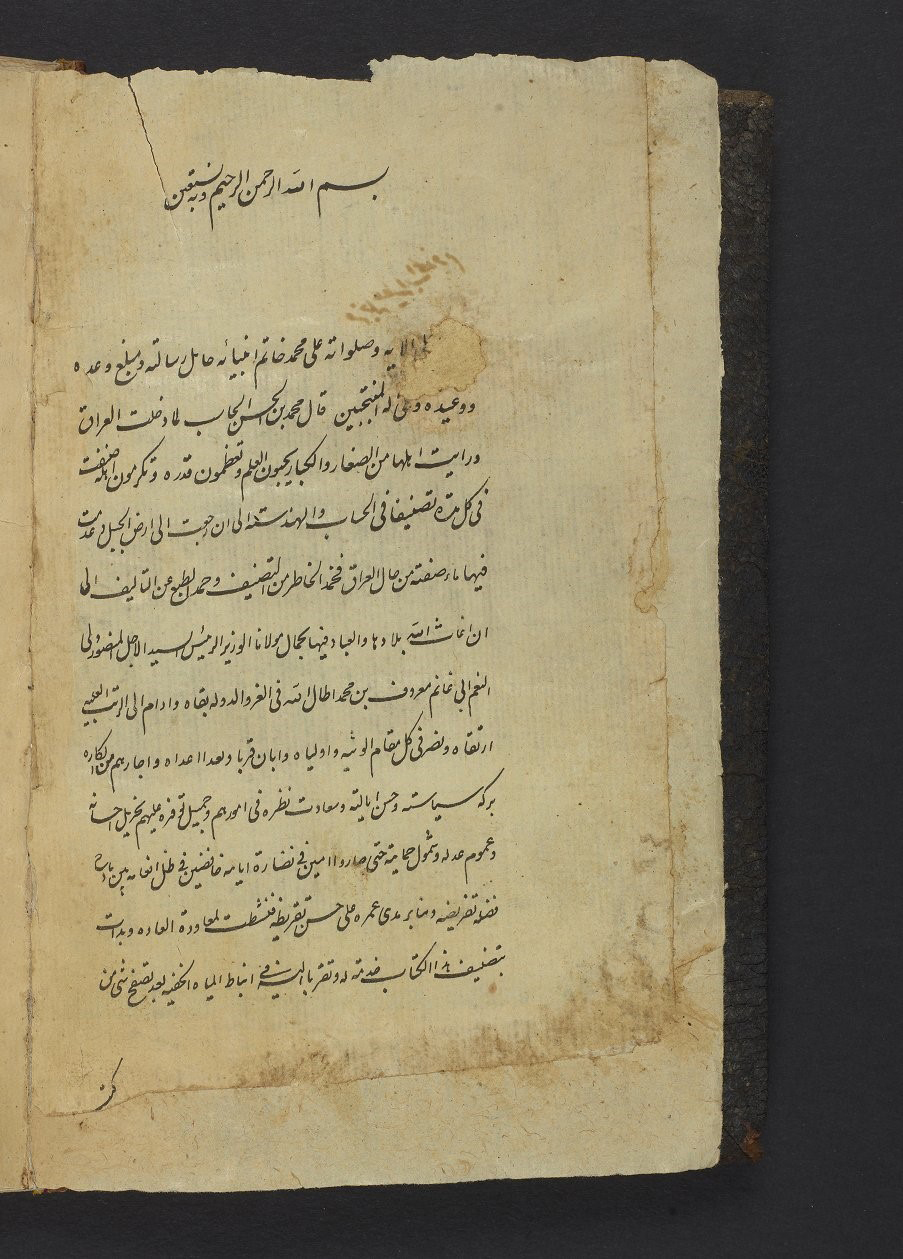 بسم الله الرحمن الرحيم وبه نستعين
الايه وصلواته على محمد خاتم انبيائه حامل رسالته ومبلغ وعده
ووعيده المنتجبين قال محمد بن الحسن الحاسب لما دخلت العراق
ورايت اهلها من الصغار والكبار يحبون العلم ويعظمون قدره ويكرمون اهله صنفت
فى كل مدة تصنيفا فى الحساب والهندسة الى ان رجعت الى ارض الجبل وعدمت
فيها ما وصفته من حال العراق فخمد الخاطر من التصنيف وجمد الطبع عن التاليف الى
ان اغاث الله بلادها والعباد فيها بجمال مولانا الوزير الرئيس السيد الاجل المنصور ولى
النعم ابى غانم معروف بن محمد اطال الله فى العز والدوله بقاه وادام الى الرتب العليه
ارتقاه ونصر فى كل مقام الويته واولياه وابان قربا وبعدا اعداه واجارهم من المكاره
بركه سياسته وحسن ايالته وسعادت نظره فى امورهم وجميل توفره عليهم بجزيل احسانه
وعموم عدله وشمول حمايته حتى صاروا امنين فى نضارة ايامه خافضين فى ظل انعامه
على حسن تقريظه فنشطت لمعاودة العاده وبدات
بتصنيف هذا الكتاب خدمة له وتقربا اليه فى انباط المياه الخفيه بعد تصفح شى من